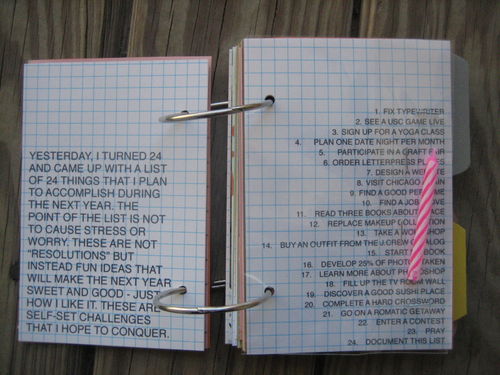 YESTERDAY, I TURNED 24
AND CAME UP WITH A LIST
OF 24 THINGS THAT I PLAN
TO ACCOMPLISH DURING
THE NEXT YEAR. THE
POINT OF THE LIST IS NOT
TO CAUSE STRESS OR
WORRY. THESE ARE NOT
"RESOLUTIONS" BUT
INSTEAD FUN IDEAS THAT
WILL MAKE THE NEXT YEAR
SWEET AND GOOD - JUST
HOW I LIKE IT. THESE ARE
SELF-SET CHALLENGES
THAT I HOPE TO CONQUER.
1. FIX TYPEWRITER
2. SEE A USC GAME LIVE
3. SIGN UP FOR A YOGA CLASS
4. PLAN ONE DATE NIGHT PER MONTH
5. PARTICIPATE IN A CRAFT FAIR
6. ORDER LETTERPRESS
7. DESIGN A WEBSITE
8. VISIT CHICAGO AGAIN
9. FIND A GOOD PERFUME
10. FIND A JOB I LOVE
11. READ THREE BOOKS ABOUT
12. REPLACE MAKEUP COLLECTION
13. TAKE A WORKSHOP
14. BUY AN OUTFIT FROM THE J.CREW CATALOG
15. START BOOK
16. DEVELOP 25% OF PHOTOS TAKEN
17. LEARN MORE ABOUT PHOTOSHOP
18. FILL UP THE TV ROOM WALL
19. DISCOVER A GOOD SUSHI PLACE
20. COMPLETE A HARD CROSSWORD
21. GO ON A ROMANTIC GETAWAY
22. ENTER A CONTEST
23. PRAY
24. DOCUMENT THIS LIST